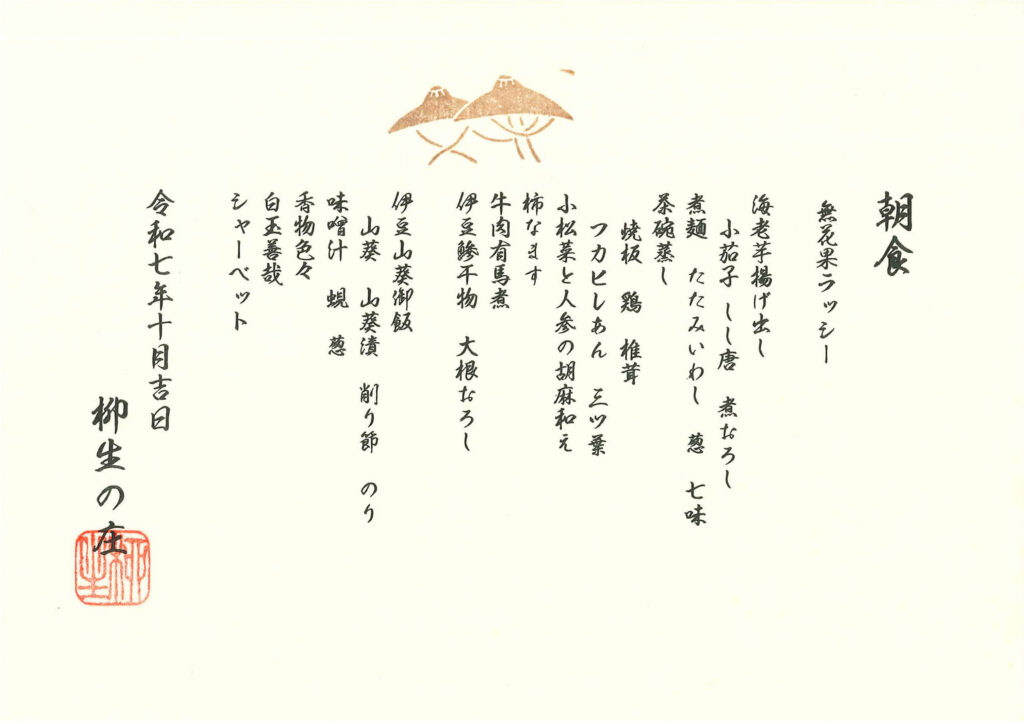 朝食
無花果ラッシー
海老芋揚げ出し
小茄子 しし唐 煮おろし
煮麺 たたみいわし 葱 七味
茶碗蒸し
焼板 鶏 椎茸
フカヒレあん 三ツ葉
小松菜と人参の胡麻和え
柿なます
牛肉有馬煮
伊豆鯵干物 大根おろし
伊豆山葵御飯
山葵 山葵漬 削り節 のり
味噌汁 蜆 葱
香物色々
白玉善哉
シャーベット
令和七年十月吉日
柳生の庄